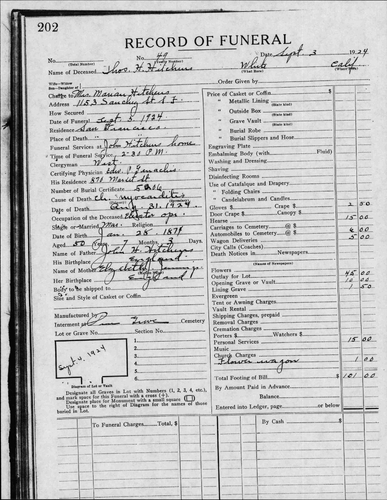 202
RECORD OF FUNERAL
No. No. 49 Date Sept 3 1924
(Total Number) (Yearly Number)
Name of Deceased Thos. H. Hitchins White Calif
Husband Wife Widow
Son—Daughter of Order Given by
Charge to Mrs. Marian Hitchins
Address 1153 Sanchez St S.F.
How Secured
Date of Funeral Sept 5 1924
Residence San Francisco
Place of Death
Funeral Services at John Hitchins home
Time of Funeral Service 2:31 P.M.
Clergyman West
Certifying Physician
His Residence 870 Market St
Number of Burial Certificate
Cause of Death Ch. myocarditis
Date of Death Aug. 31. 1924
Occupation of the Deceased
Single or Married Mar. Religion
Date of Birth Jan. 28. 1874
Aged 50 Years 7 Months 3 Days
Name of Father John H. Hitchins
His Birthplace England
Name of Mother Elizabeth
Her Birthplace England
Body to be shipped to
Size and Style of Casket or Coffin
Manufactured by
Interment at Cemetery
Lot or Grave No. Section No.
Sept. 4, 1924
Diagram of Lot or Vault
Designate all Graves in Lot with Numbers (1, 2, 3, 4, etc.),
and mark space for this Funeral with a cross (+)
Designate place for Monument with a small square (□)
Use space to right of Diagram for the names of those
buried in Lot.
Price of Casket or Coffin $
" Metallic Lining
(State kind)
" Outside Box
(State kind)
" Grave Vault
(State kind)
" Burial Robe
" Burial Slippers and Hose
Engraving Plate
Embalming Body (with Fluid)
Washing and Dressing
Shaving
Disinfecting Rooms
Use of Catafalque and Drapery
" Folding Chairs
" Candelabrum and Candles
Gloves $ Crape $ 2 50
Door Crape $ Canopy $
Hearse 15 00
Carriages to Cemetery @ $
Automobiles to Cemetery @ $ 6 00
Wagon Deliveries 5 00
City Calls (Coaches)
Death Notices in Newspapers
(Names of Newspapers)
Flowers 45 00
Outlay for Lot
Opening Grave or Vault 10 00
Lining Grave 1 50
Evergreen
Tent or Awning Charges
Vault Rental
Shipping Charges, prepaid
Removal Charges
Cremation Charges
Porters $ Watchers $
Personal Services 15 00
Music
Church Charges
Flower wagon 1 00
Total Footing of Bill $ 101 00
By Amount Paid in Advance
Balance
Entered into Ledger, page or below
To Funeral Charges $ By Cash $